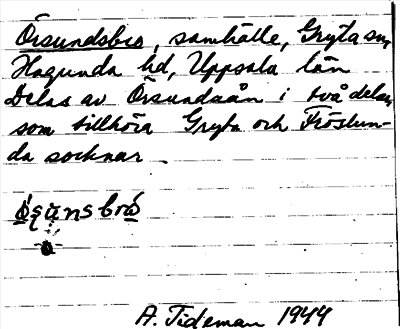 Örsundsbro, samhälle, Gryta sn,
Hagunda hd, Uppsala län
Delas av Örsundaån i två delar,
som tillhöra Gryta och Fröslun-
da socknar.
A. Tideman 1944